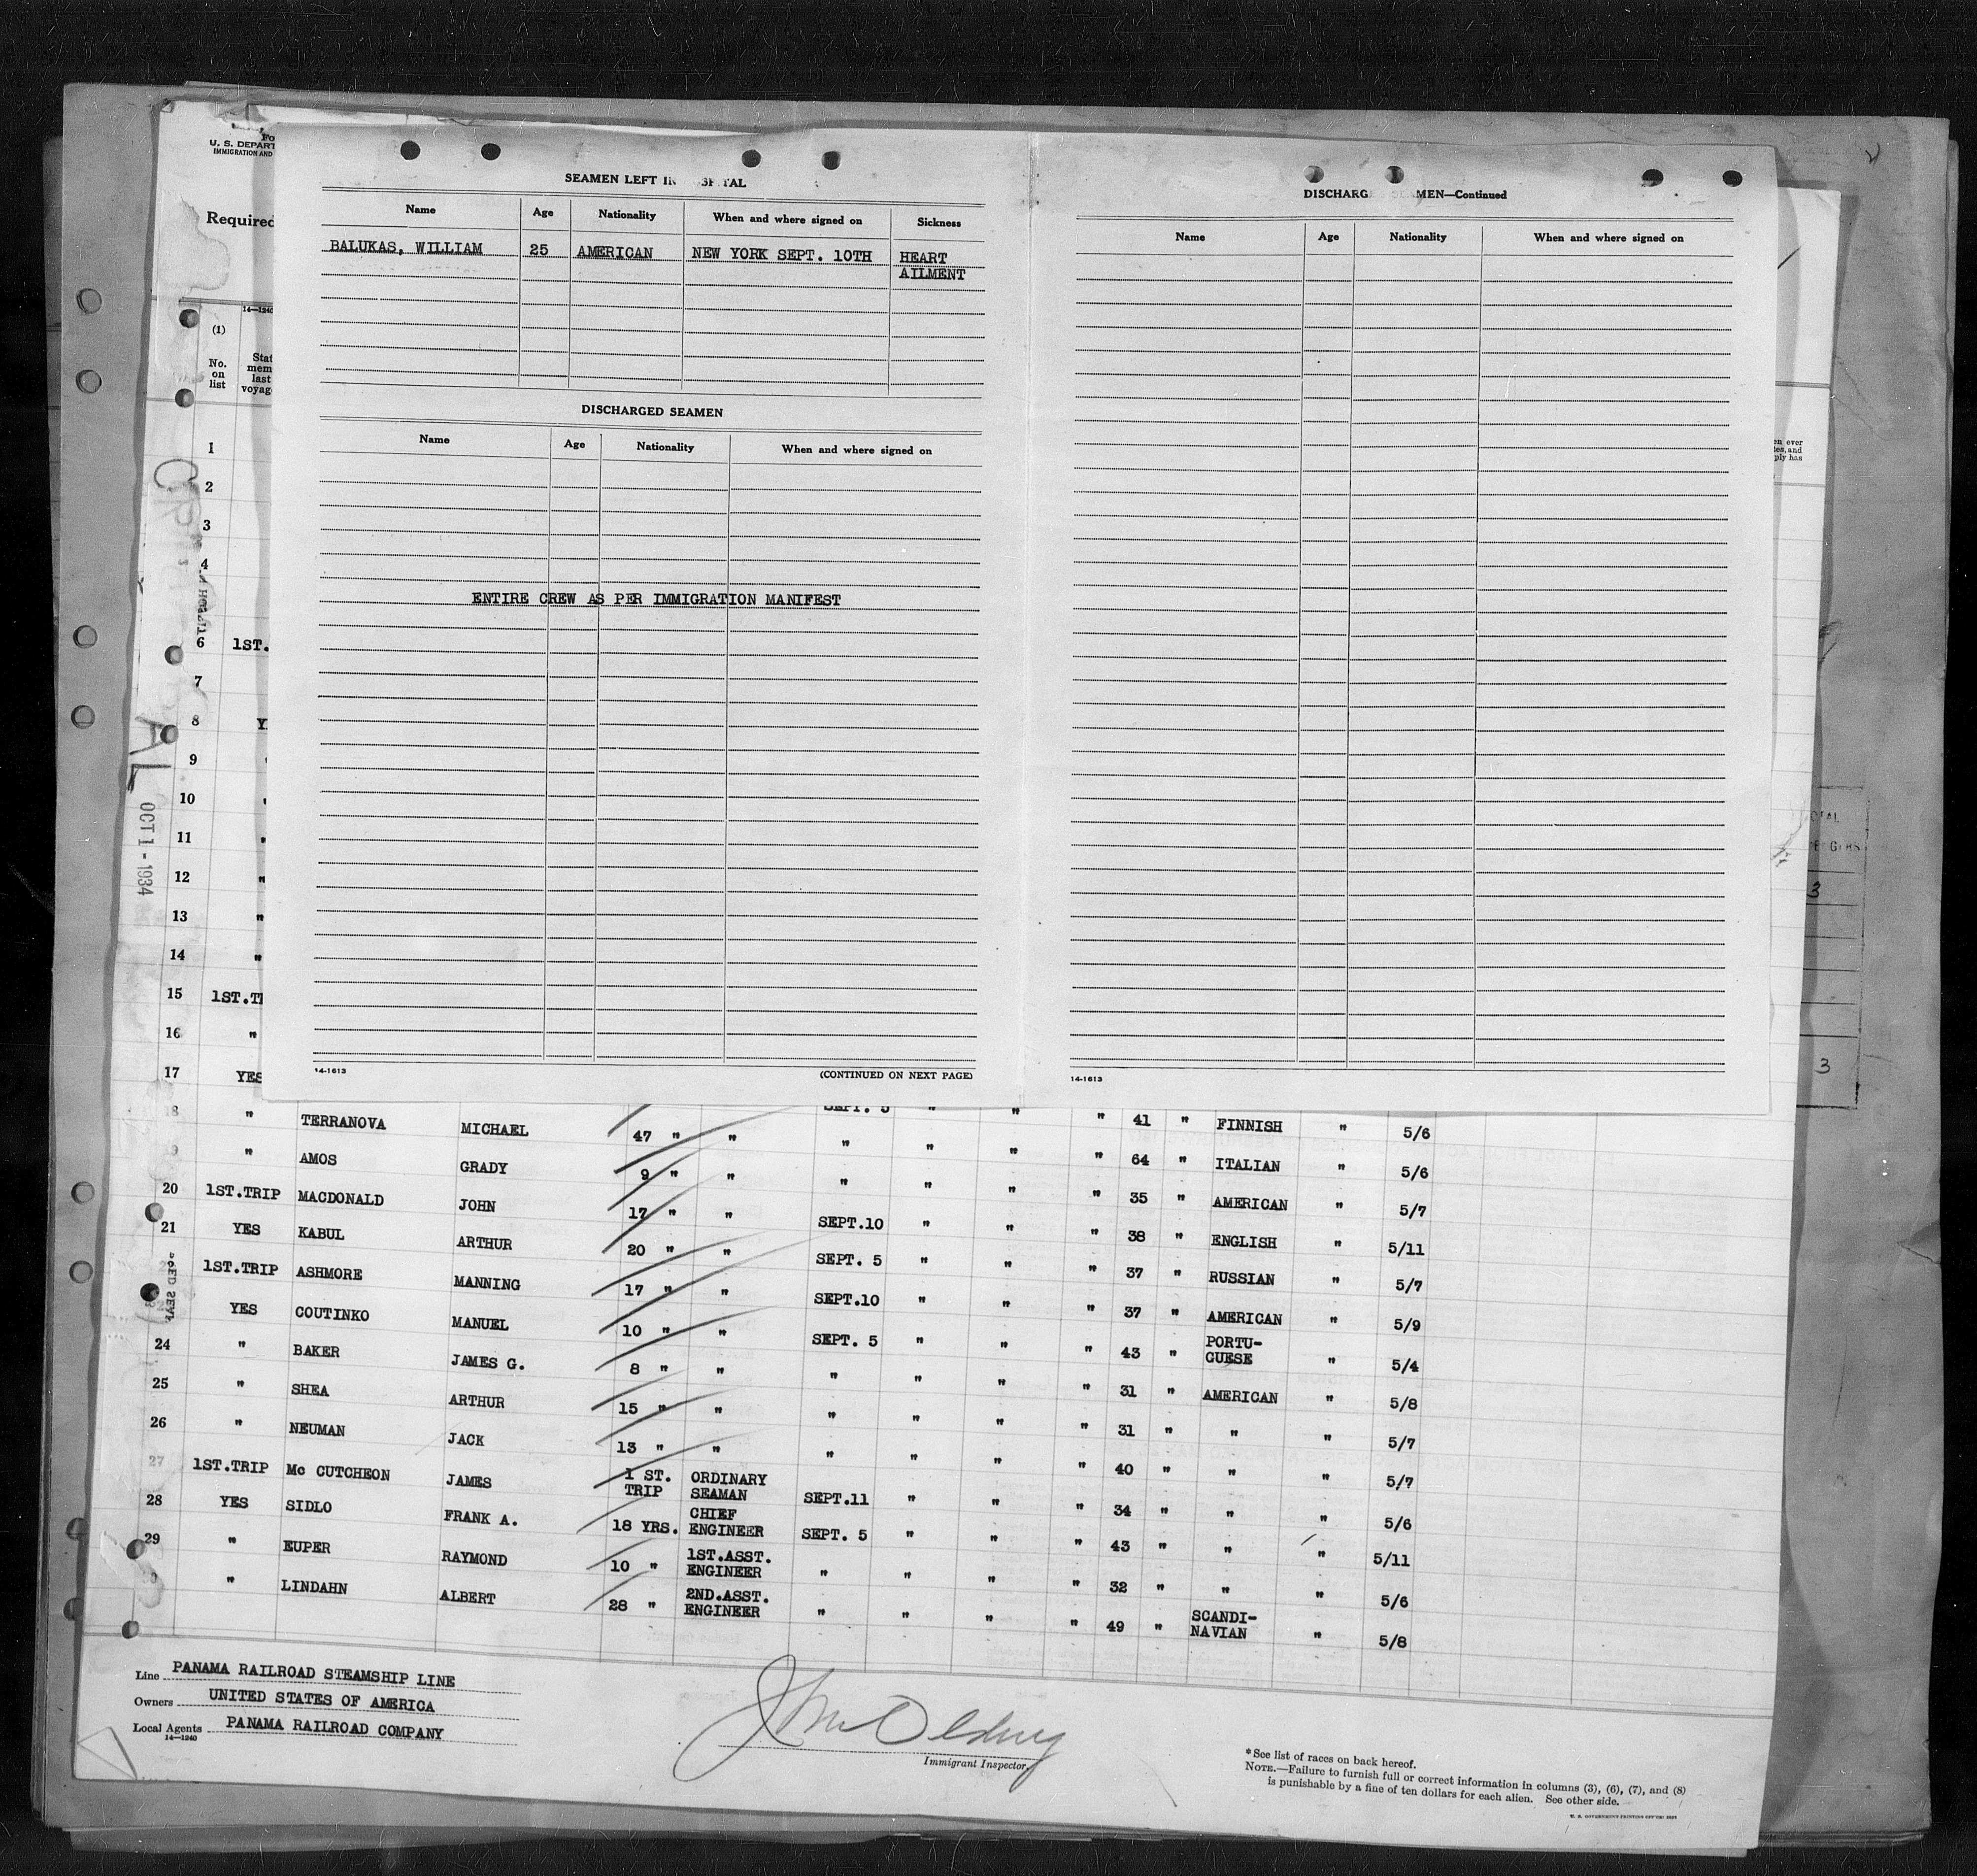 Fo
U. S. DEPART
IMMIGRATION AND
Required
14—1240
(1)
No. on list
Stat mem last voyag
SEAMEN LEFT IN HOSPITAL
Name Age Nationality When and where signed on Sickness
BALUKAS, WILLIAM 25 AMERICAN NEW YORK SEPT. 10TH HEART
AILMENT
DISCHARGED SEAMEN
Name Age Nationality When and where signed on
ENTIRE CREW AS PER IMMIGRATION MANIFEST
14-1613
(CONTINUED ON NEXT PAGE)
DISCHARG SEAMEN—Continued
Name Age Nationality When and where signed on
14-1613
en ever
tes, and
ply has
OTAL
3
3
OCT 1 - 1934
1
2
3
4
6 1ST.
7
8 Y
9 "
10 "
11 "
12 "
13 "
14 "
15 1ST.T
16 "
17 YES
18 " TERRANOVA MICHAEL 47 " " SEPT. 5 " " " 41 " FINNISH " 5/6
9 " AMOS GRADY 9 " " " " " " 64 " ITALIAN " 5/6
20 1ST.TRIP MACDONALD JOHN 17 " " " " " " 35 " AMERICAN " 5/7
21 YES KABUL ARTHUR 20 " " SEPT.10 " " " 38 " ENGLISH " 5/11
1ST.TRIP ASHMORE MANNING 17 " " SEPT. 5 " " " 37 " RUSSIAN " 5/7
YES COUTINKO MANUEL 10 " " SEPT.10 " " " 37 " AMERICAN " 5/9
24 " BAKER JAMES G. 8 " " SEPT. 5 " " " 43 " PORTU-
GUESE " 5/4
25 " SHEA ARTHUR 15 " " " " " " 31 " AMERICAN " 5/8
26 " NEUMAN JACK 13 " " " " " " 31 " " " 5/7
27 1ST.TRIP Mc CUTCHEON JAMES 1 ST.
TRIP ORDINARY
SEAMAN " " " " 40 " " " 5/7
28 YES SIDLO FRANK A. 18 YRS. CHIEF
ENGINEER SEPT.11 " " " 34 " " " 5/6
29 " EUPER RAYMOND 10 " 1ST.ASST.
ENGINEER SEPT. 5 " " " 43 " " " 5/11
" LINDAHN ALBERT 28 " 2ND.ASST.
ENGINEER " " " " 32 " " " 5/6
" " " " 49 " SCANDI-
NAVIAN " 5/8
Line PANAMA RAILROAD STEAMSHIP LINE
Owners UNITED STATES OF AMERICA
Local Agents PANAMA RAILROAD COMPANY
14—1240
Immigrant Inspector.
*See list of races on back hereof.
NOTE.—Failure to furnish full or correct information in columns (3), (6), (7), and (8)
is punishable by a fine of ten dollars for each alien. See other side.